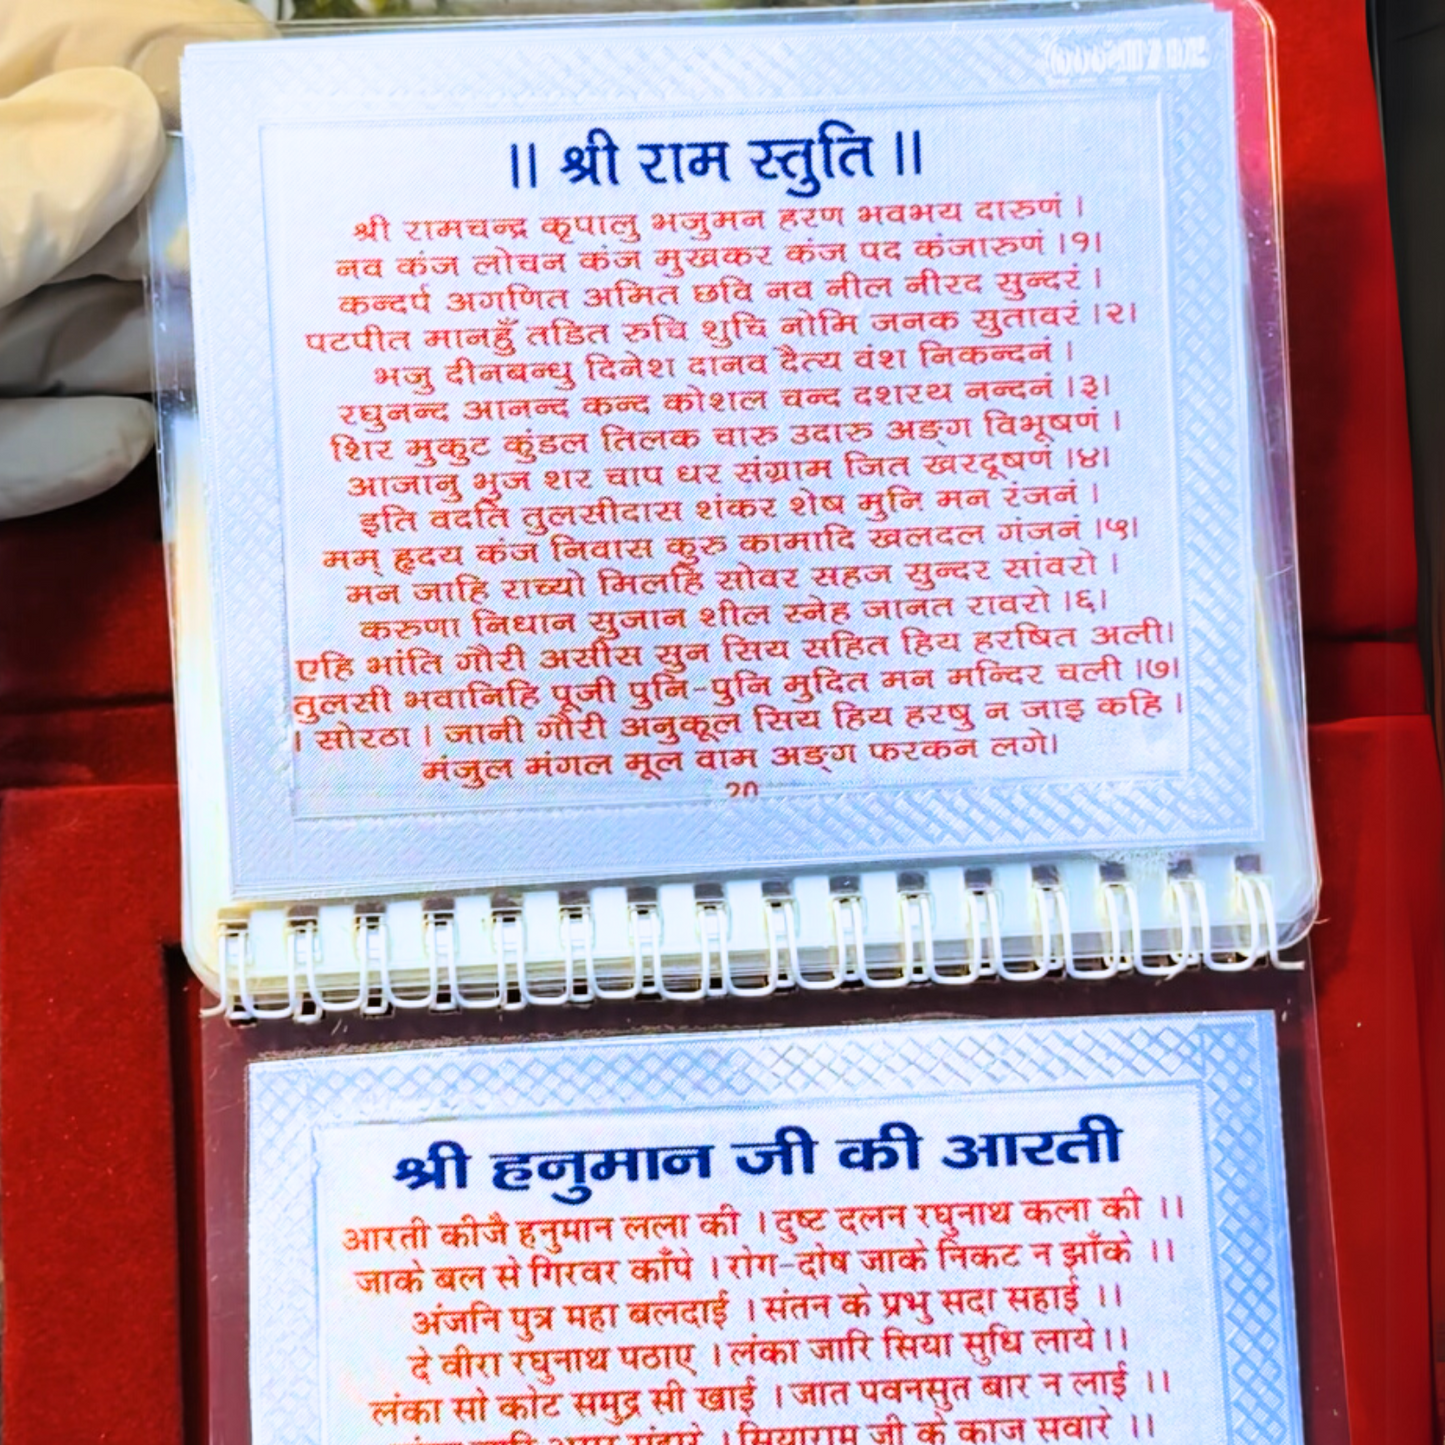 || श्री राम स्तुति ||
श्री रामचन्द्र कृपालु भजुमन हरण भवभय दारुणं ।
नव कंज लोचन कंज मुखकर कंज पद कंजारुणं ।१।
कन्दर्प अगणित अमित छवि नव नील नीरद सुन्दरं ।
पटपीत मानहुँ तडित रुचि शुचि नोमि जनक सुतावरं ।२।
भजु दीनबन्धु दिनेश दानव दैत्य वंश निकन्दनं ।
रघुनन्द आनन्द कन्द कोशल चन्द दशरथ नन्दनं ।३।
शिर मुकुट कुंडल तिलक चारु उदारु अङ्ग विभूषणं ।
आजानु भुज शर चाप धर संग्राम जित खरदूषणं ।४।
इति वदति तुलसीदास शंकर शेष मुनि मन रंजनं ।
मम् हृदय कंज निवास कुरु कामादि खलदल गंजनं ।५।
मन जाहि राच्यो मिलहि सोवर सहज सुन्दर सांवरो ।
करुणा निधान सुजान शील स्नेह जानत रावरो ।६।
एहि भांति गौरी असीस सुन सिय सहित हिय हरषित अली।
तुलसी भवानिहि पूजी पुनि-पुनि मुदित मन मन्दिर चली ।७।
। सोरठा । जानी गौरी अनुकूल सिय हिय हरषु न जाइ कहि ।
मंजुल मंगल मूल वाम अङ्ग फरकन लगे।
20
श्री हनुमान जी की आरती
आरती कीजै हनुमान लला की । दुष्ट दलन रघुनाथ कला की ।।
जाके बल से गिरवर काँपे । रोग-दोष जाके निकट न झाँके ।।
अंजनि पुत्र महा बलदाई । संतन के प्रभु सदा सहाई ।।
दे वीरा रघुनाथ पठाए । लंका जारि सिया सुधि लाये।।
लंका सो कोट समुद्र सी खाई । जात पवनसुत बार न लाई ।।
। सियाराम जी के काज सवारे ।।